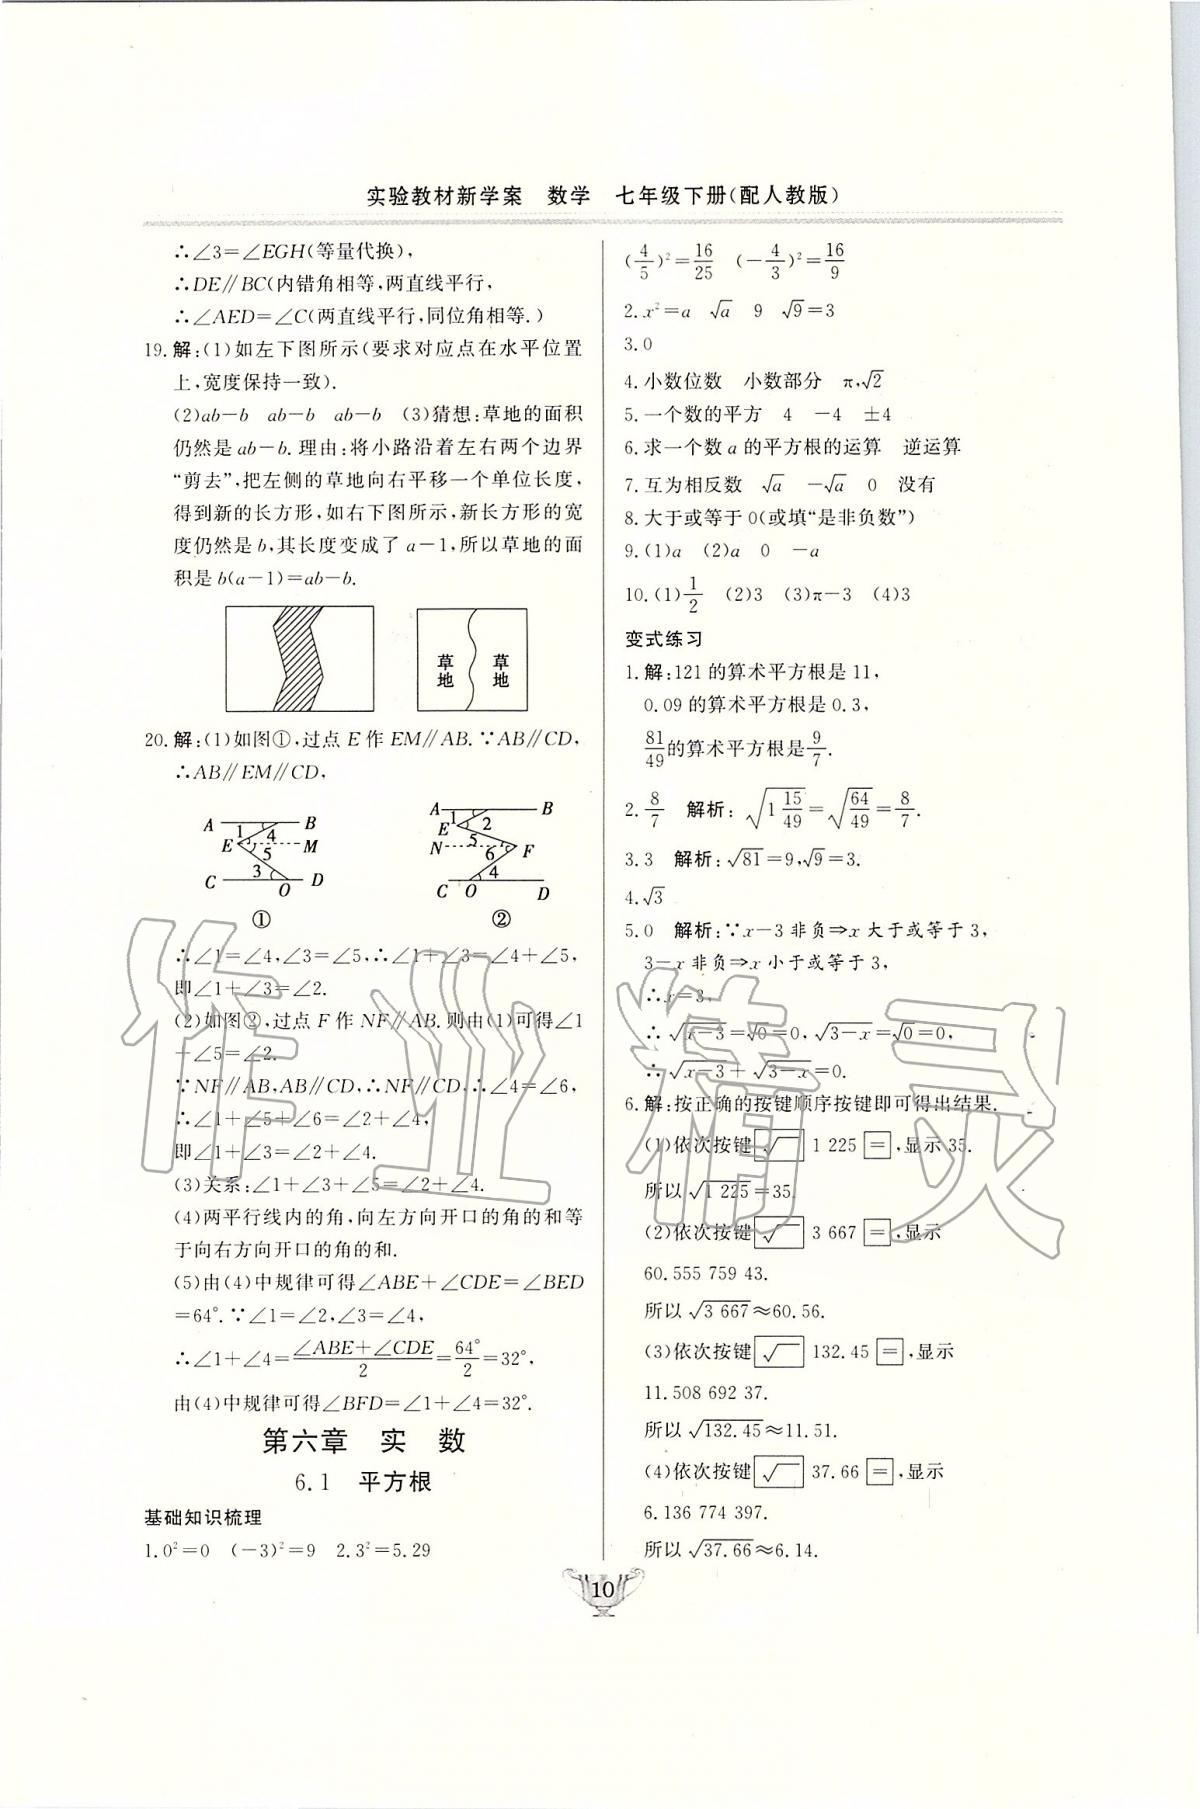 实验教材新学案 数学 七年级下册(配人教版)
∴∠3=∠EGH(等量代换),
∴DE∥BC(内错角相等,两直线平行,
∴∠AED=∠C(两直线平行,同位角相等.)
19.解:(1)如左下图所示(要求对应点在水平位置
上,宽度保持一致).
(2)ab-b ab-b ab-b (3)猜想:草地的面积
仍然是ab-b.理由:将小路沿着左右两个边界
“剪去”,把左侧的草地向右平移一个单位长度,
得到新的长方形,如右下图所示,新长方形的宽
度仍然是b,其长度变成了a-1,所以草地的面
积是b(a-1)=ab-b.
草地 草地
20.解:(1)如图①,过点E作EM∥AB.∵AB∥CD,
∴AB∥EM∥CD,
A 1 4 B
E 5 M
C 3 O D
①
A 1 2 B
E
N 5 6 F
C O 4 D
②
∴∠1=∠4,∠3=∠5,∴∠1+∠3=∠4+∠5,
即∠1+∠3=∠2.
(2)如图②,过点F作NF∥AB.则由(1)可得∠1
+∠5=∠2.
∵NF∥AB,AB∥CD,∴NF∥CD,∴∠4=∠6,
∴∠1+∠5+∠6=∠2+∠4,
即∠1+∠3=∠2+∠4.
(3)关系:∠1+∠3+∠5=∠2+∠4.
(4)两平行线内的角,向左方向开口的角的和等
于向右方向开口的角的和.
(5)由(4)中规律可得∠ABE+∠CDE=∠BED
=64°.∵∠1=∠2,∠3=∠4,
∴∠1+∠4=(∠ABE+∠CDE)/2=64°/2=32°,
由(4)中规律可得∠BFD=∠1+∠4=32°.
第六章 实 数
6.1 平方根
基础知识梳理
1.0²=0 (-3)²=9 2.3²=5.29
(4/5)²=16/25 (-4/3)²=16/9
2.x²=a √a 9 √9=3
3.0
4.小数位数 小数部分 π,√2
5.一个数的平方 4 -4 ±4
6.求一个数a的平方根的运算 逆运算
7.互为相反数 √a -√a 0 没有
8.大于或等于0(或填“是非负数”)
9.(1)a (2)a 0 -a
10.(1)1/2 (2)3 (3)π-3 (4)3
变式练习
1.解:121的算术平方根是11,
0.09的算术平方根是0.3,
81/49的算术平方根是9/7.
2.8/7 解析:√(1 15/49)=√(64/49)=8/7.
3.3 解析:√81=9,√9=3.
4.√3
5.0 解析:∵x-3非负⇒x大于或等于3,
3-x非负⇒x小于或等于3,
∴x=3,
∴√(x-3)=√0=0,√(3-x)=√0=0,
∴√(x-3)+√(3-x)=0.
6.解:按正确的按键顺序按键即可得出结果.
(1)依次按键 √ 1 225 = ,显示35.
所以√(1 225)=35.
(2)依次按键 √ 3 667 = ,显示
60.555 759 43.
所以√(3 667)≈60.56.
(3)依次按键 √ 132.45 = ,显示
11.508 692 37.
所以√(132.45)≈11.51.
(4)依次按键 √ 37.66 = ,显示
6.136 774 397.
所以√(37.66)≈6.14.
10
作业精灵